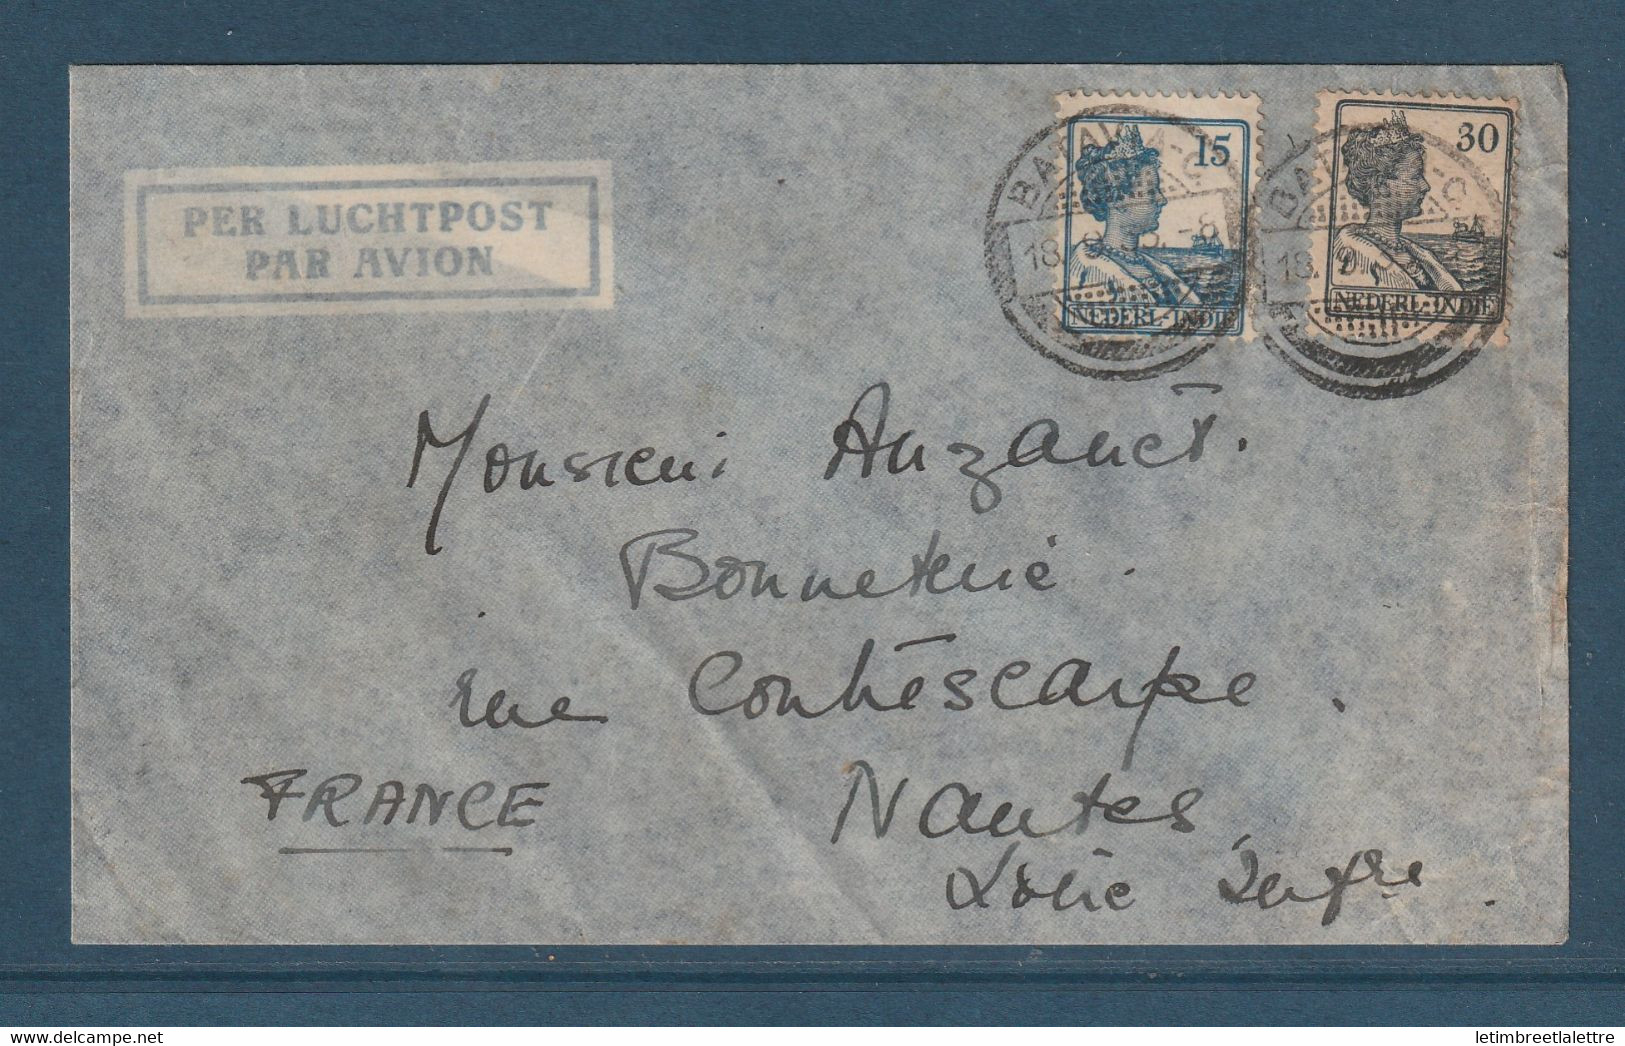 PER LUCHTPOST
PAR AVION
15
NEDERL-INDIE
30
NEDERL-INDIE
BATAVIA-C
18.
Monsieur Auzanet.
Bonneterie.
rue Contrescarpe.
Nantes
Loire Infre.
FRANCE
letimbreetlalettre